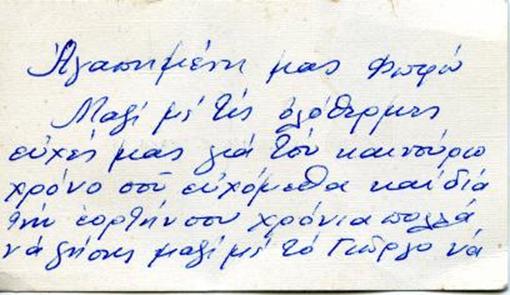 Ἀγαπημένη μας Φωφώ
Μαζί μέ τίς ὁλόθερμες
εὐχές μας γιά τόν καινούριο
χρόνο σοῦ εὐχόμεθα καί διά
τήν ἑορτήν σου χρόνια πολλά
νά ζήσης μαζί μέ τό Γιῶργο νά